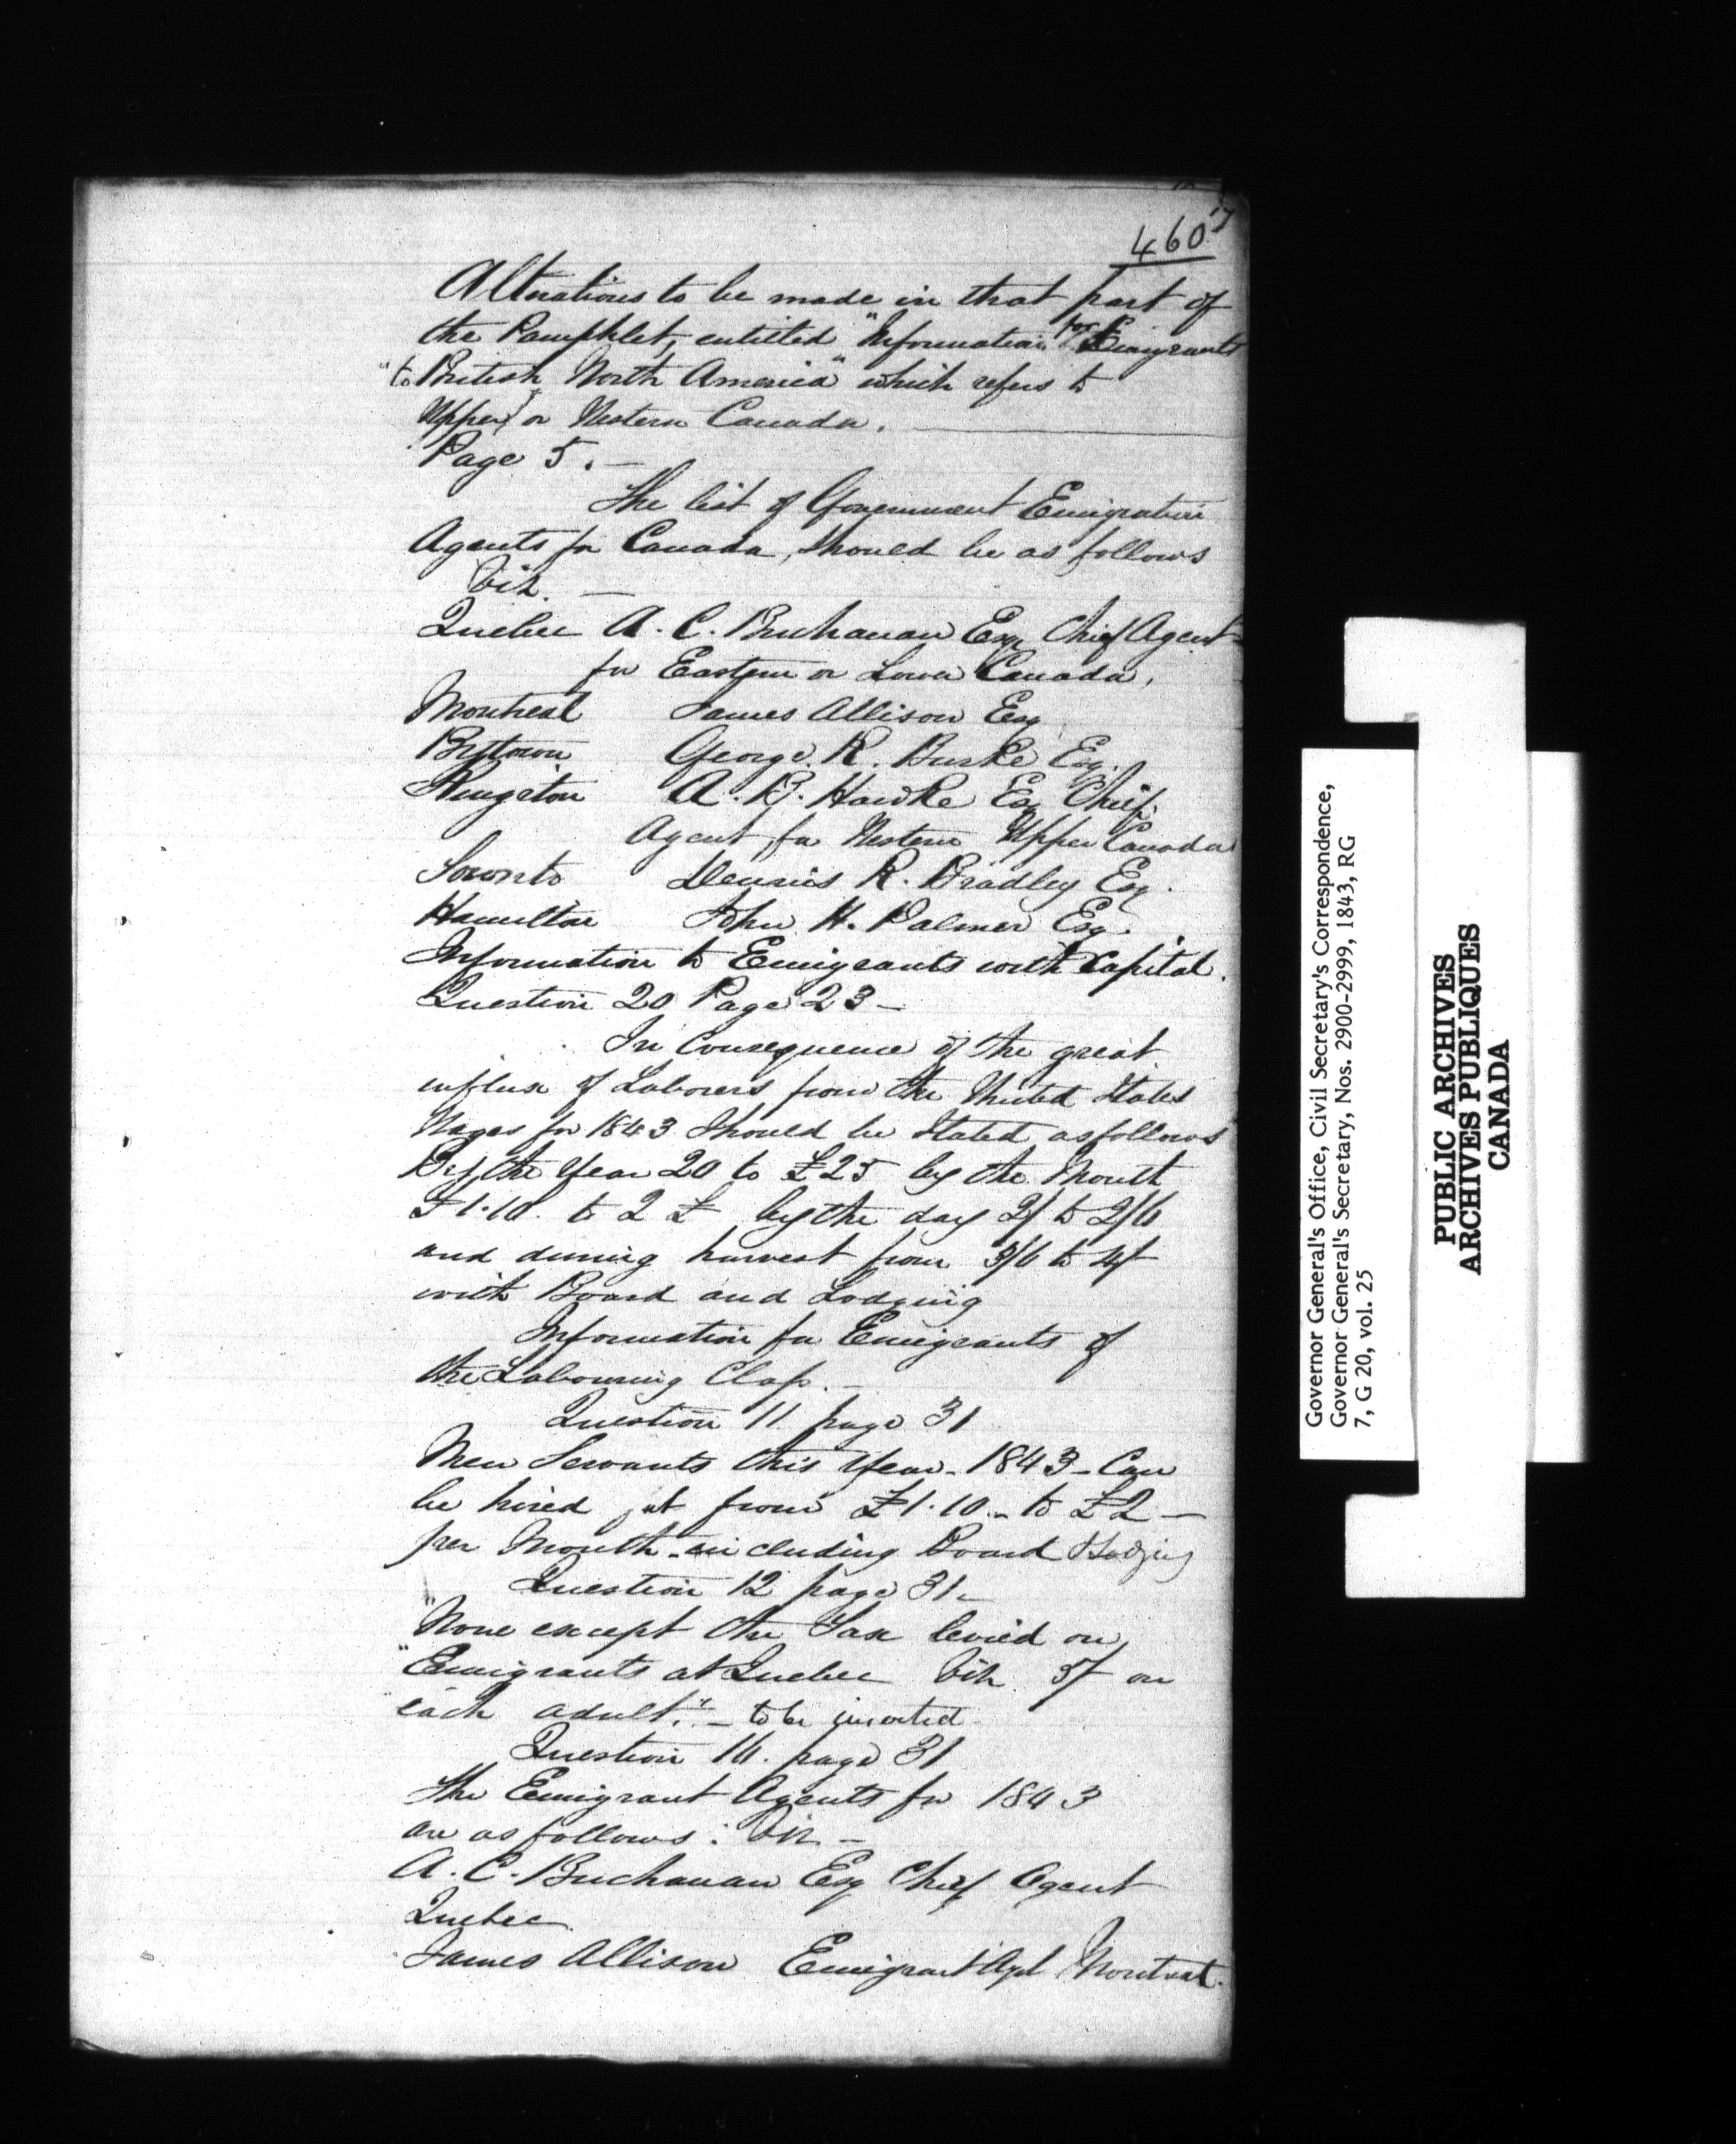 460
Alterations to be made in that part of
the Pamphlet, entitled "Information for Emigrants
"to British North America" which refers to
Upper or Western Canada.
Page 5. —
The list of Government Emigration
Agents for Canada, should be as follows
Viz. —
Quebec A. C. Buchanan Esq Chief Agent
for Eastern or Lower Canada,
Montreal James Allison Esq
Bytown George R. Burke Esq.
Kingston A. B. Hawke Esq Chief
Agent for Western Upper Canada
Toronto Dennis R. Bradley Esq.
Hamilton John H. Palmer Esq.
Information to Emigrants with Capital.
Question 20 Page 23 —
In Consequence of the great
influx of Laborers from the United States
Wages for 1843 Should be Stated as follows
By the Year 20 to £25 by the Month
£1.10. to 2 £ by the day 2/ to 2/6
and during harvest from 3/6 to 4/
with Board and Lodging
Information for Emigrants of
the Labouring Class. —
Question 11 page 31
Men Servants this Year - 1843 - Can
be hired at from £1.10 - to £2 —
per Month - including Board & Lodging
Question 12 page 31 —
"None except the Tax levied on
"Emigrants at Quebec Viz. 5/ on
each adult." — to be inserted
Question 16. page 31
The Emigrant Agents for 1843
are as follows: Viz —
A. C. Buchanan Esq Chief Agent
Quebec
James Allison Emigrant Agt Montreal.
Governor General's Office, Civil Secretary's Correspondence,
Governor General's Secretary, Nos. 2900-2999, 1843, RG
7, G 20, vol. 25
PUBLIC ARCHIVES
ARCHIVES PUBLIQUES
CANADA